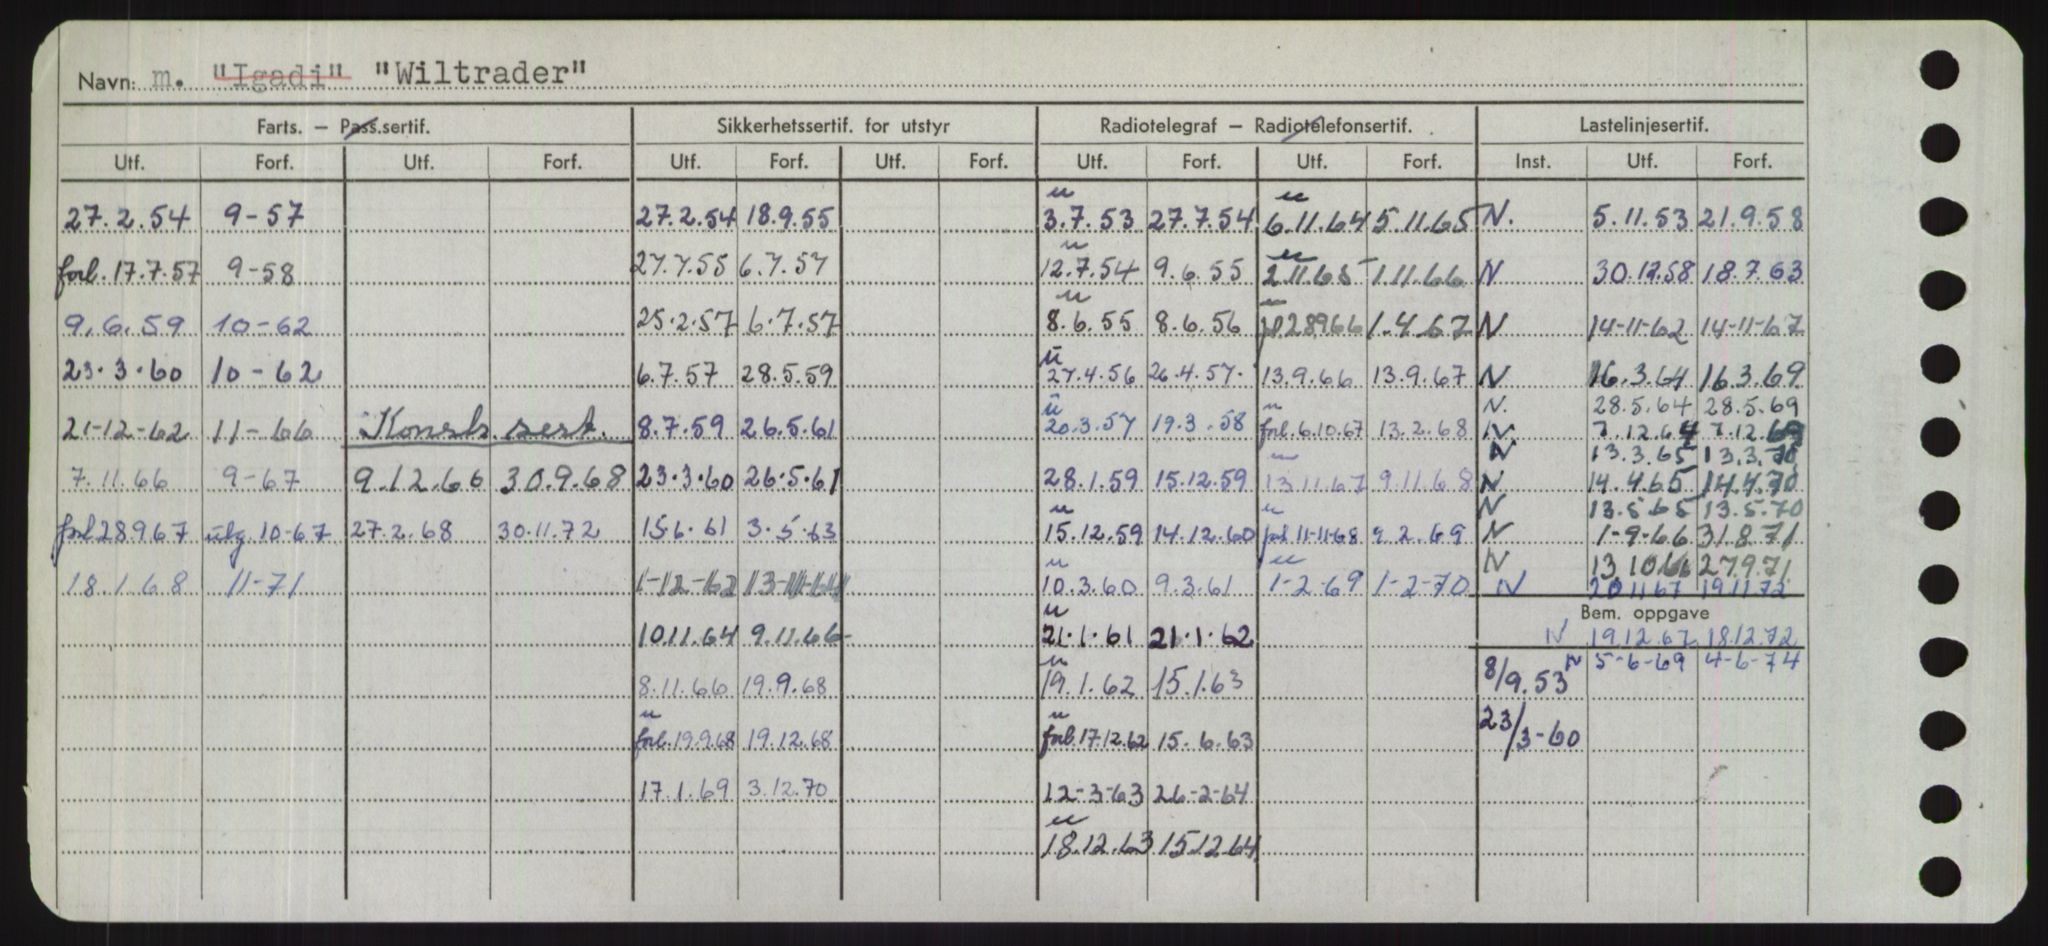 Navn: m. "Igadi" "Wiltrader"
Farts. — Pass.sertif. Sikkerhetssertif. for utstyr Radiotelegraf — Radiotelefonsertif. Lastelinjesertif.
Utf. Forf. Utf. Forf. Utf. Forf. Utf. Forf. Utf. Forf. Utf. Forf. Inst. Utf. Forf.
u u
27.2.54 9-57 27.2.54 18.9.55 3.7.53 27.7.54 6.11.64 5.11.65 N. 5.11.53 21.9.58
u u
forl. 17.7.57 9-58 27.7.55 6.7.57 12.7.54 9.6.55 2.11.65 1.11.66 N 30.12.58 18.7.63
u u
9.6.59 10-62 25.2.57 6.7.57 8.6.55 8.6.56 28966 1.4.67 N 14-11-62 14-11-67
u
23.3.60 10-62 6.7.57 28.5.59 27.4.56 26.4.57. 13.9.66 13.9.67 N 16.3.64 16.3.69
u u N. 28.5.64 28.5.69
21-12-62 11-66 Konstr. sert. 8.7.59 26.5.61 20.3.57 19.3.58 forl. 6.10.67 13.2.68 N. 7.12.64 7.12.69
u N 13.3.65 13.3.70
7.11.66 9-67 9.12.66 30.9.68 23.3.60 26.5.61 28.1.59 15.12.59 13.11.67 9.11.68 N 14.4.65 14.4.70
u u N 13.5.65 13.5.70
forl 28967 utg. 10-67 27.2.68 30.11.72 15.6.61 3.5.63 15.12.59 14.12.60 forl 11-11-68 9.2.69 N 1-9-66 31.8.71
u u N 13 10 66 27.9.71
18.1.68 11-71 1-12-62 13-11-64 10.3.60 9.3.61 1-2-69 1-2-70 N 20.11.67 19.11.72
u Bem. oppgave
10.11.64 9.11.66 21.1.61 21.1.62 N 19.12.67 18.12.72
u N 5-6-69 4-6-74
8.11.66 19.9.68 19.1.62 15.1.63 8/9.53
u u
forl. 19.9.68 19.12.68 forl. 17.12.62 15.6.63 23/3-60
17.1.69 3.12.70 12-3-63 26-2-64
u
18.12.63 15.12.64